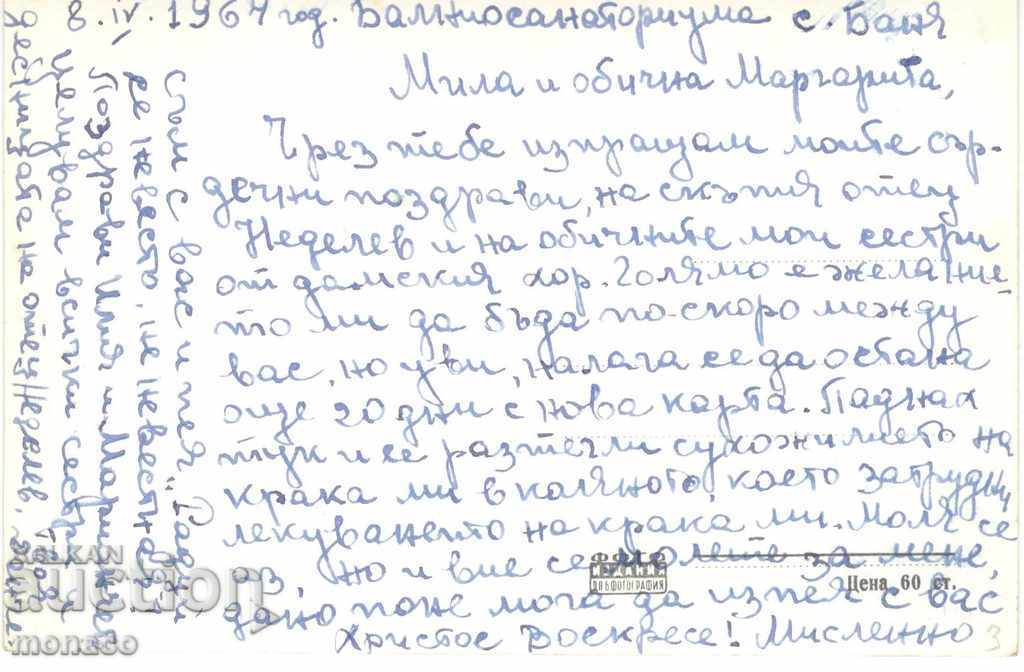 8. IV. 1964 год. Балниосанаториума с. Баня
Мила и обична Маргарита,
Чрез тебе изпращам моите сър-
дечни поздрави, на скъпия отец
Неделев и на обичните мои сестри
от дамския хор. Голямо е желание-
то ми да бъда по-скоро между
вас, но уви, налага се да остана
още 20 дни с нова карта. Паднах
тук и се разтегли сухожилието на
крака ми в коляното, което затрудни
лекуването на крака ми. Моля се
аз, но и вие се молете за мене,
дано поне мога да изпея с вас
Христос Воскресе! Мисленно
съм с вас и пея „Радуй
се невесто, не невестная"
Поздрави Илия и Марийчето
Целувам всички сестри
десницата на отец Неделев.
ФОТО
ДКБФОТОГРАФИЯ
Цена 60 ст.
3
BALKAN
auction
monaco